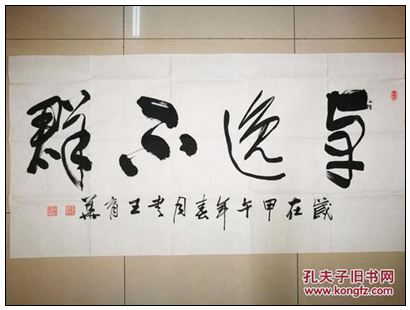 卓逸不群
歲在甲午年春月书王有
孔夫子旧书网
www.kongfz.com